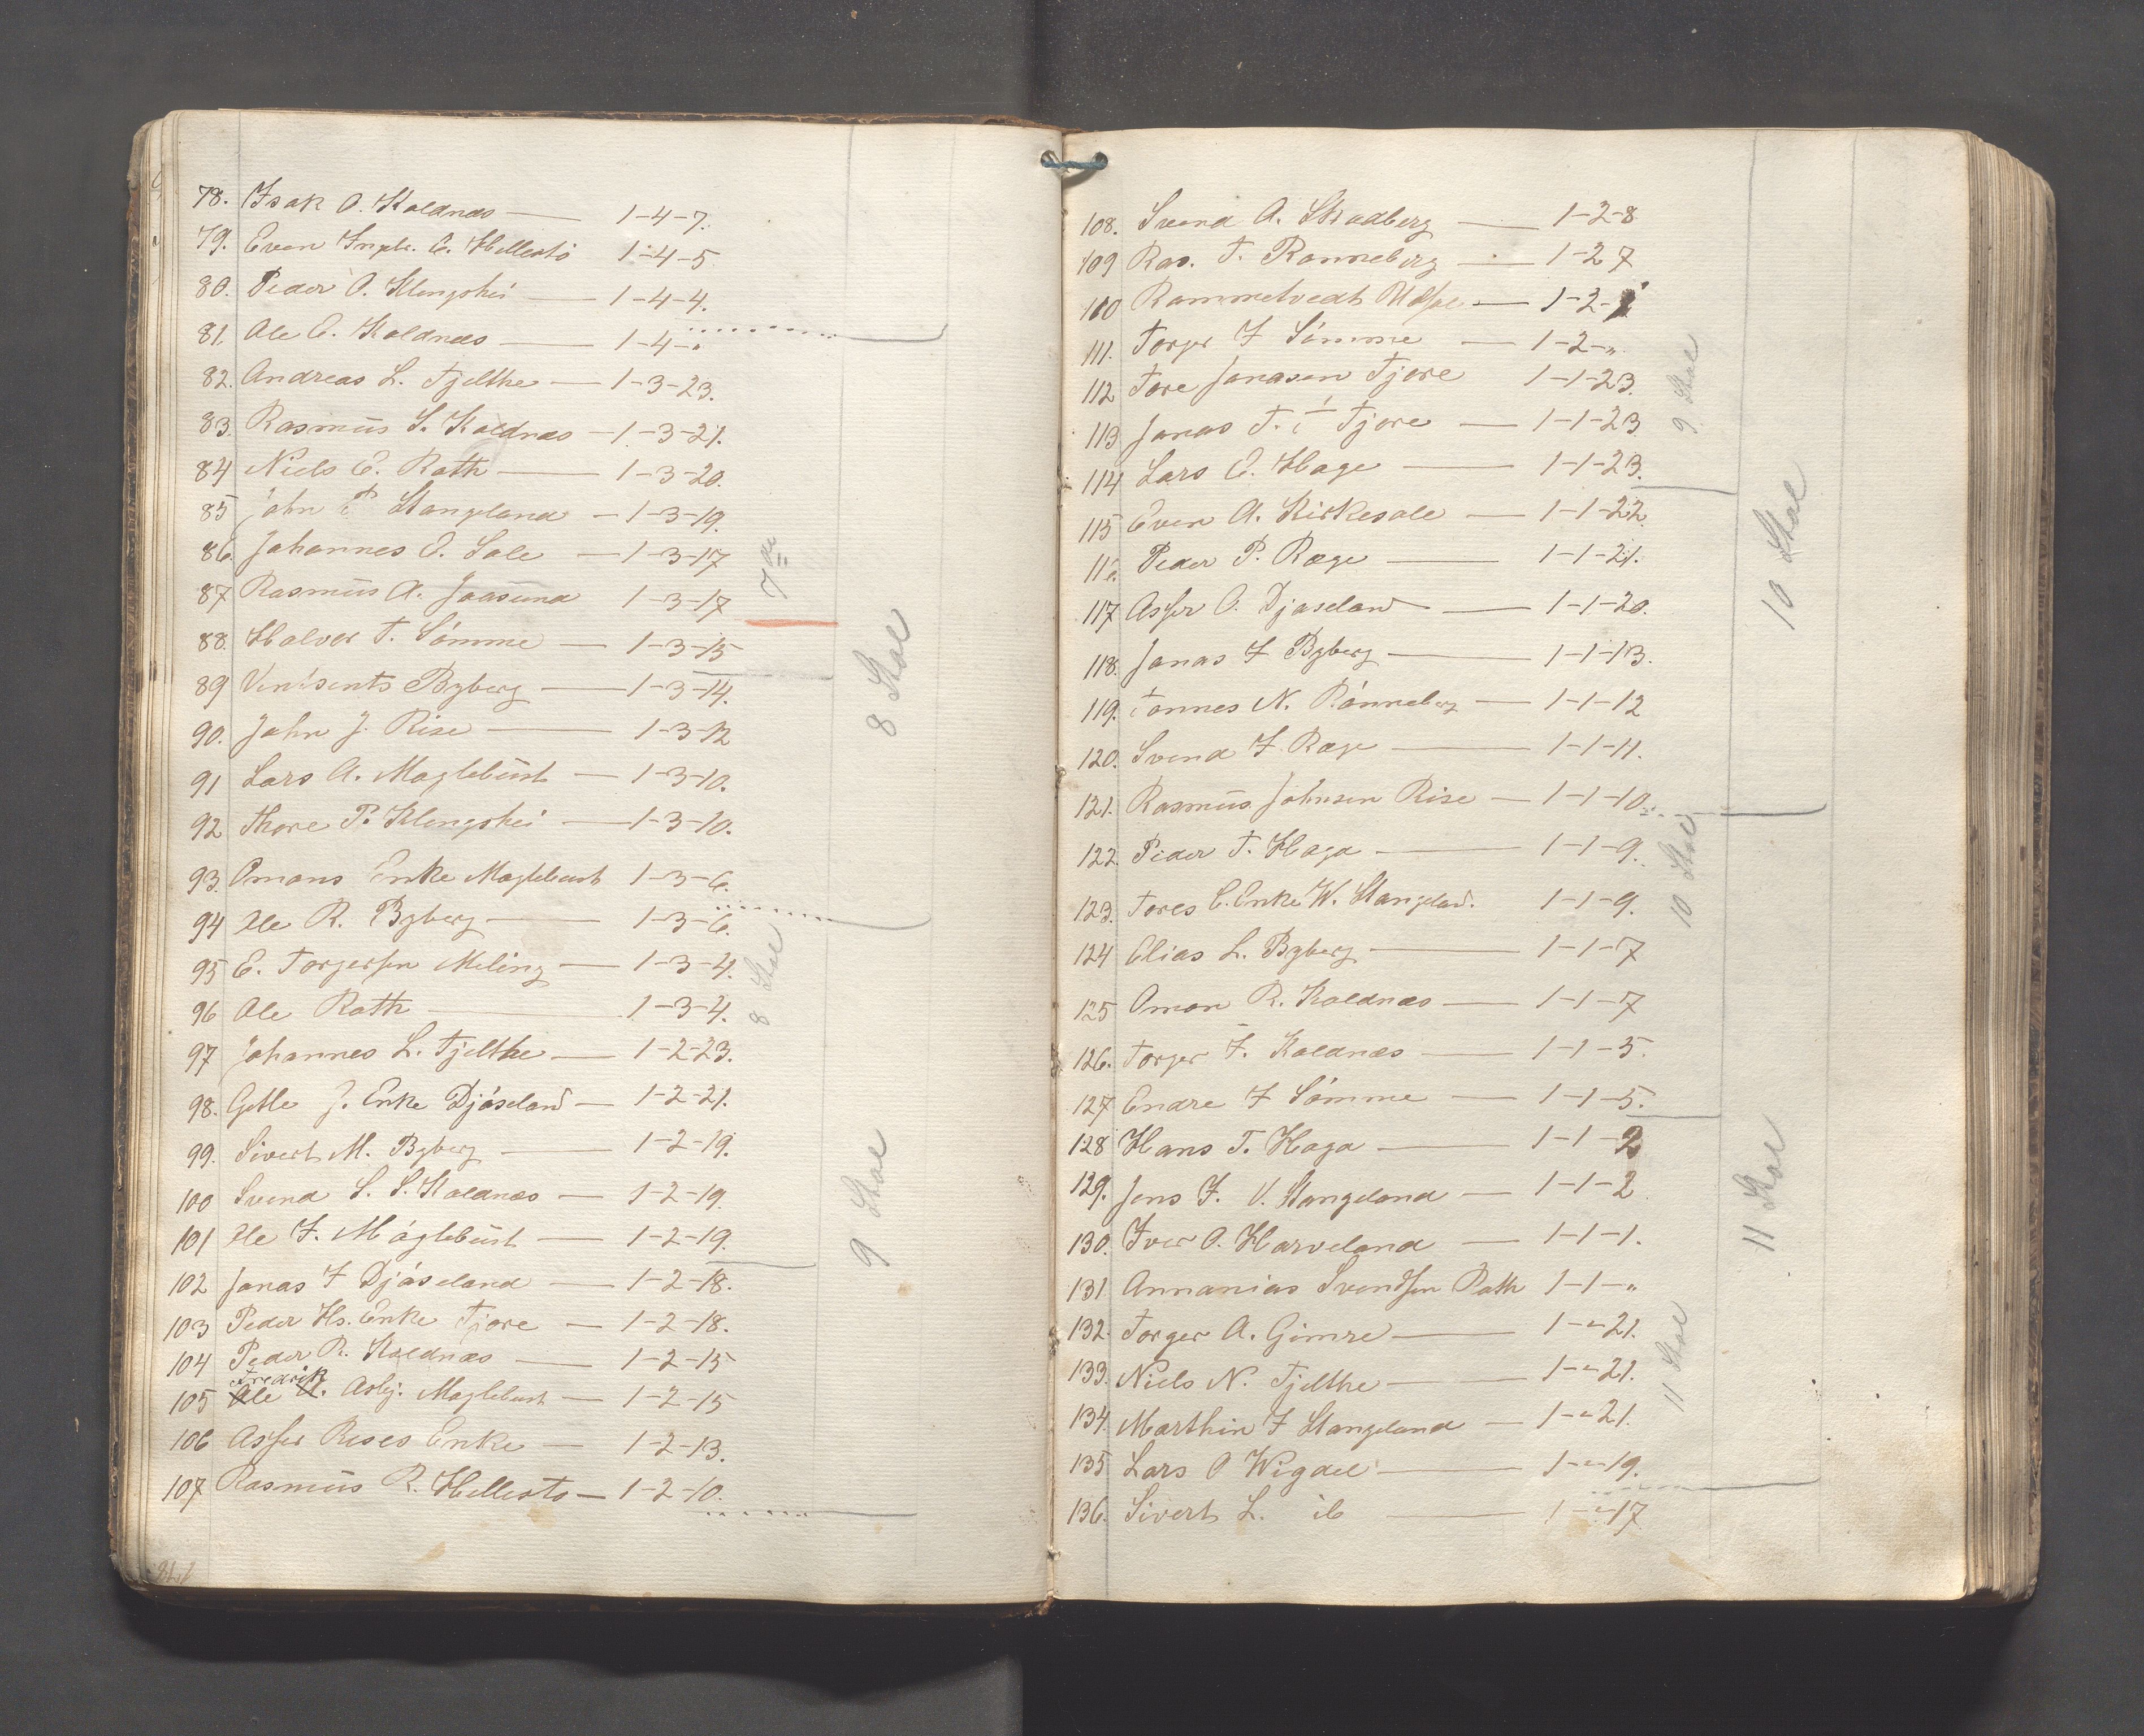 78. Isak O. Koldnæs — 1-4-7.
79. Even Ingbr. E. Hellestö 1-4-5
80. Peder O. Klengshei — 1-4-4.
81. Ole C. Koldnæs — 1-4-"
82. Andreas L. Tjelthe — 1-3-23.
83. Rasmus S. Koldnæs — 1-3-21.
84 Niels E. Roth — 1-3-20.
85 John P Stangeland — 1-3-19.
86. Johannes E. Sole — 1-3-17
87 Rasmus A. Joasund 1-3-17
7de
88. Halvor T. Sömme — 1-3-15
8 Stol
89 Vintsents Byberg — 1-3-14.
90. John J. Rise — 1-3-12
91 Lars A. Moglebust — 1-3-10.
92 Thore P. Klengshei — 1-3-10.
93. Omans Enke Moglebust 1-3-6.
94 Ole R. Byberg — 1-3-6.
95 E. Torgersen Meling — 1-3-4.
96 Ole Roth — 1-3-4.
8 Stol
97 Johannes L. Tjelthe — 1-2-23.
98. Gitle J. Enke Djöseland — 1-2-21.
99. Sivert M. Byberg — 1-2-19.
100 Svend S. S. Koldnæs — 1-2-19.
9 Stol
101 Ole I. Möglebust — 1-2-19.
102 Jonas I Djöseland — 1-2-18.
103 Peder Hs. Enke Tjore — 1-2-18.
104 Peder R. Koldnæs — 1-2-15
Fredrik
105 Ole A. Asbj. Moglebust — 1-2-15
106 Asser Rises Enke — 1-2-13.
107 Rasmus R. Hellesto — 1-2-10.
108. Svend A. Skodberg — 1-2-8
109 Ras. T. Ronneberg — 1-2 7
110 Rommetvedt — 1-2-
111. Torger I Sömme — 1-2-"
112 Tore Jonasen Tjore 1-1-23.
9 Stol
113 Jonas T. Tjore — 1-1-23
114 Lars E. Hage — 1-1-23.
115 Even A. Kirkesole — 1-1-22.
10 Stol
116. Peder P. Ræge — 1-1-21.
117 Asser O. Djoseland — 1-1-20.
118. Jonas I Byberg — 1-1-13.
119. Tonnes N. Rönneberg — 1-1-12
120. Svend I. Ræge — 1-1-11.
121. Rasmus Johnsen Rise — 1-1-10.
122. Peder T. Haga — 1-1-9.
10 Stol
123. Tores C. Enke W. Stangeland. 1-1-9.
124 Elias L. Byberg — 1-1-7
125 Omon R. Koldnæs — 1-1-7
126. Torger I. Koldnæs — 1-1-5.
127 Endre I Sömme — 1-1-5.
128 Hans T. Haga — 1-1-2
11 Stol
129. Jens I. V. Stangeland — 1-1-2
130. Iver O. Harveland — 1-1-1.
131 Annanias Svendsen Roth 1-1-"
132. Torger A. Gimre — 1-"-21.
11 Stol
133. Niels N. Tjelthe — 1-"-21.
134. Marthin I Stangeland — 1-"-21.
135 Lars O Wigdel — 1-"-19.
136. Sivert L. ib — 1-"-17